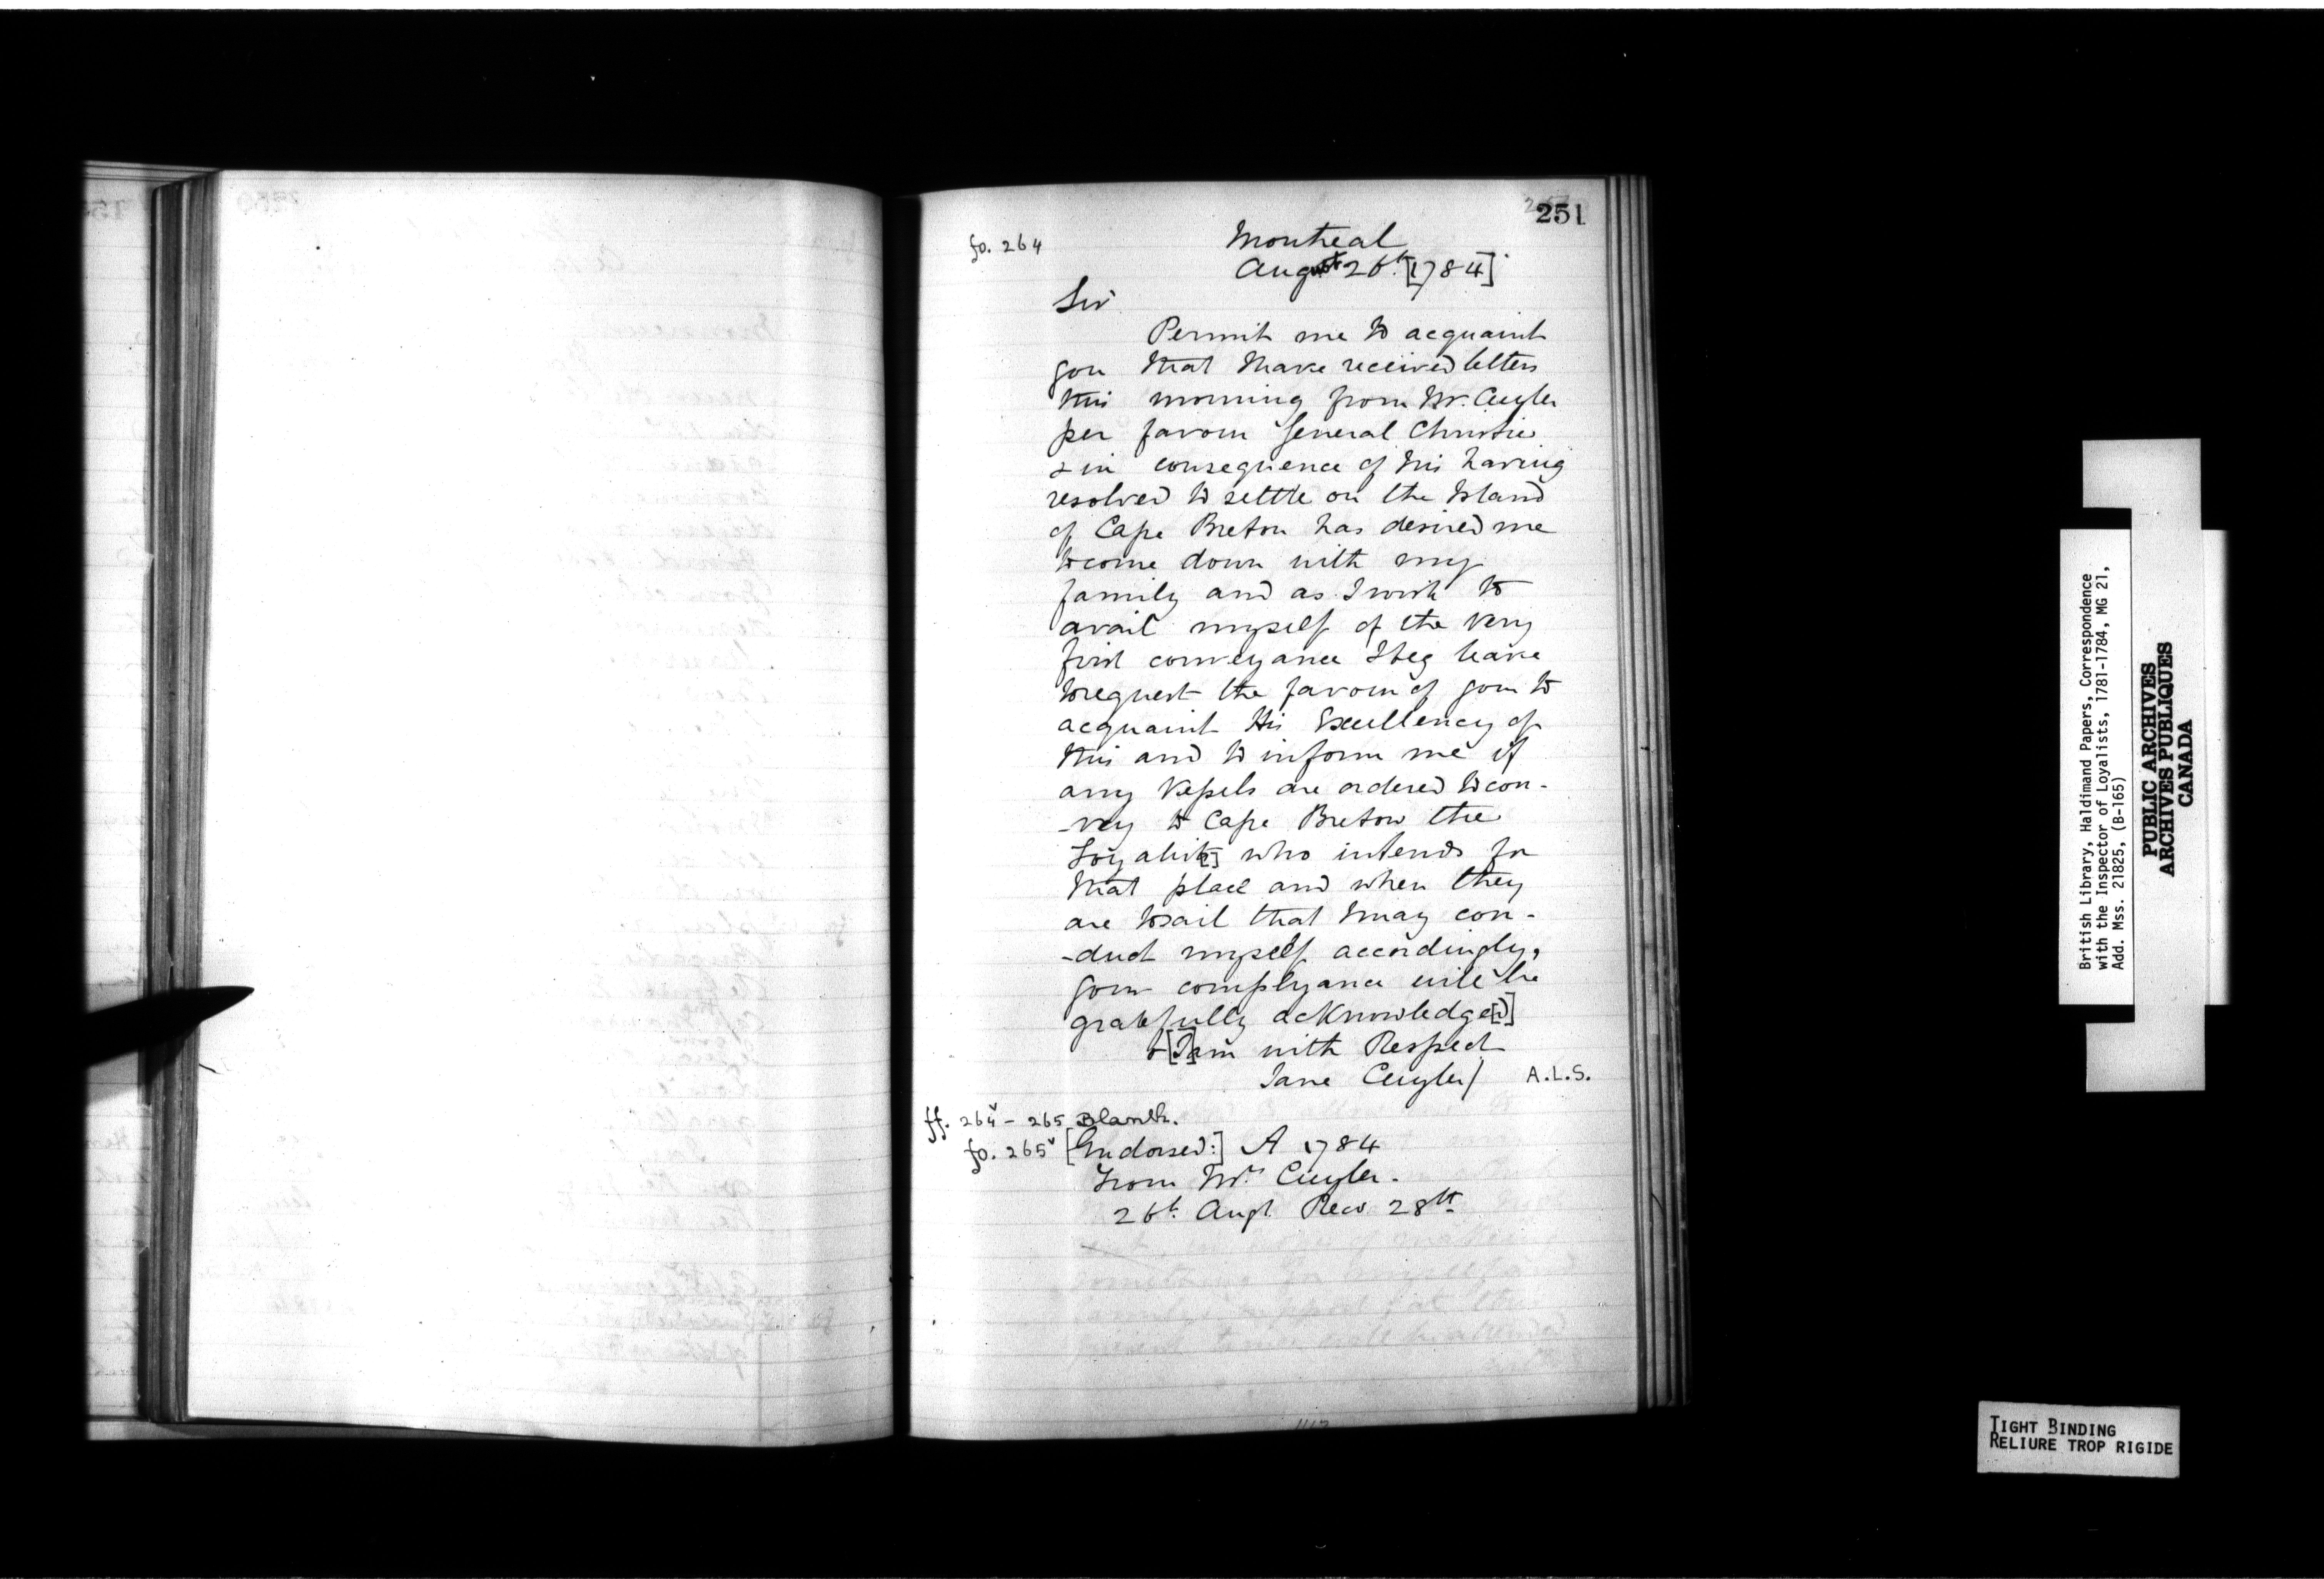 251
fo. 264
Montreal
Augst 26th. [1784]
Sir
Permit me to acquaint
you that I have received letters
this morning from Mr. Cuyler
per favour General Christie
& in consequence of his having
resolved to settle on the Island
of Cape Breton has desired me
to come down with my
family and as I wish to
avail myself of the very
first conveyance I beg leave
to request the favour of you to
acquaint His Excellency of
this and to inform me if
any Vessels are ordered to con-
-vey to Cape Breton the
Loyalist[s] who intends for
that place and when they
are to sail that I may con-
-duct myself accordingly,
your complyance will be
gratefully acknowledge[d]
& [I] am with Respect
Jane Cuyler/ A.L.S.
ff. 264v - 265 Blank.
fo. 265v [Endorsed:] A 1784
From Mrs. Cuyler.
26th. Augt. Recd 28th
British Library, Haldimand Papers, Correspondence
with the Inspector of Loyalists, 1781-1784, MG 21,
Add. Mss. 21825, (B-165)
PUBLIC ARCHIVES
ARCHIVES PUBLIQUES
CANADA
TIGHT BINDING
RELIURE TROP RIGIDE